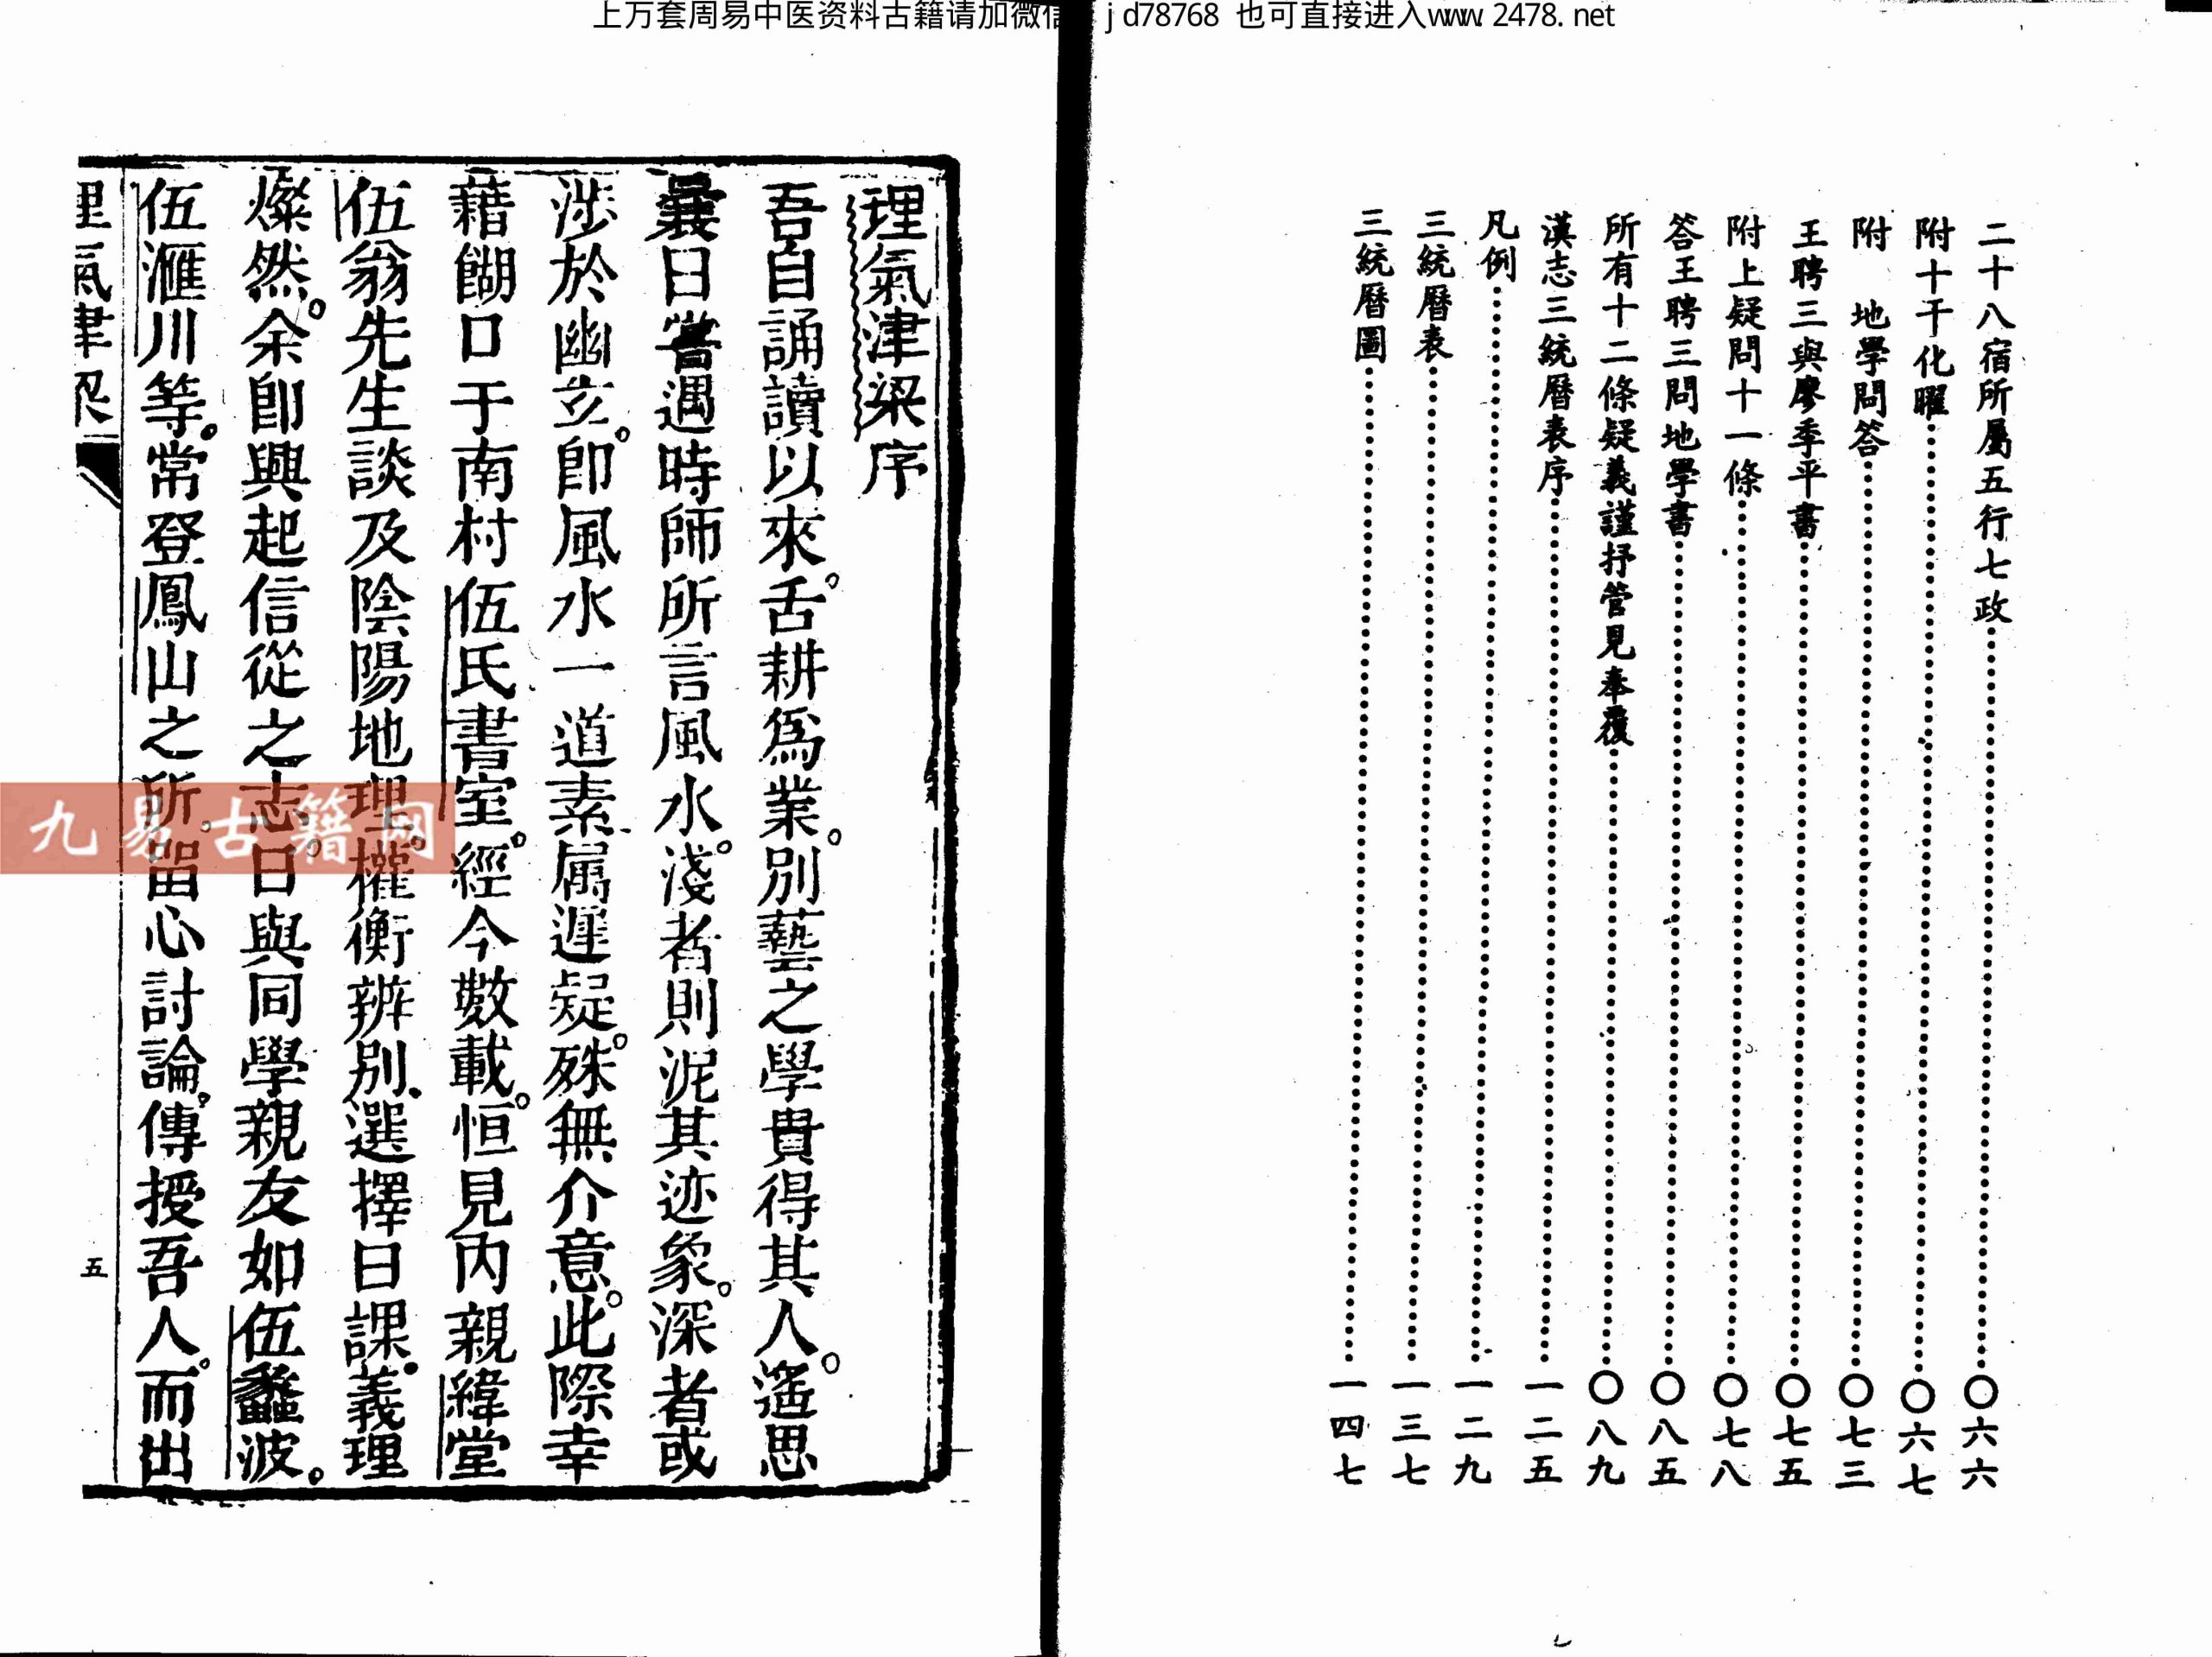 上万套周易中医资料古籍请加微信 jd78768 也可直接进入www.2478.net
二十八宿所屬五行七政⋯⋯〇六六
附十干化曜⋯⋯〇六七
附 地學問答⋯⋯〇七三
王聘三與廖季平書⋯⋯〇七五
附上疑問十一條⋯⋯〇七八
答王聘三問地學書⋯⋯〇八五
所有十二條疑義謹抒管見奉覆⋯⋯〇八九
漢志三統曆表序⋯⋯一二五
凡例⋯⋯一二九
三統曆表⋯⋯一三七
三統曆圖⋯⋯一四七
理氣津梁序
吾自誦讀以來。舌耕爲業。別藝之學貴得其人。遙思
曩日嘗遇時師所言風水。淺者則泥其迹象。深者或
涉於幽玄。即風水一道素属遲疑。殊無介意。此際幸
藉餬口于南村伍氏書室。經今數載。恒見内親緯堂
伍翁先生談及陰陽地理。權衡辨別。選擇日課。義理
燦然。余即興起信從之志。日與同學親友如伍蠡波。
伍滙川等。常登鳳山之所。畱心討論。傳授吾人。而出
理氣津梁
五
九易古籍网